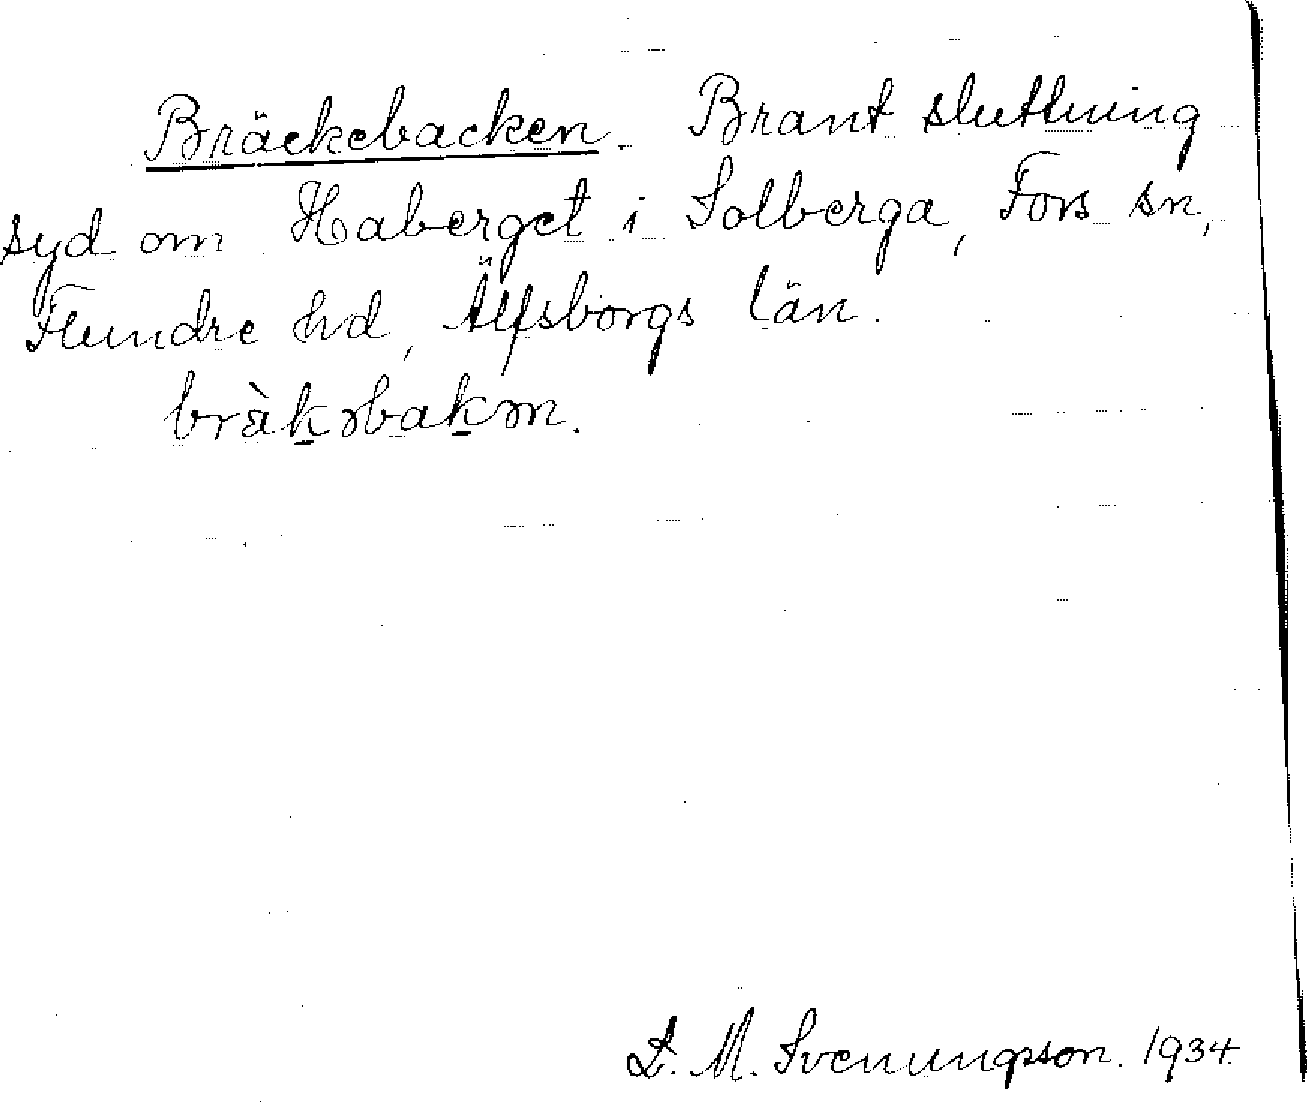 Bräckebacken. Brant sluttning
syd om Haberget i Solberga, Fors sn,
Flundre hd, Älfsborgs län.
bràk̠əbak̠ən.
L. M. Svenungsson. 1934